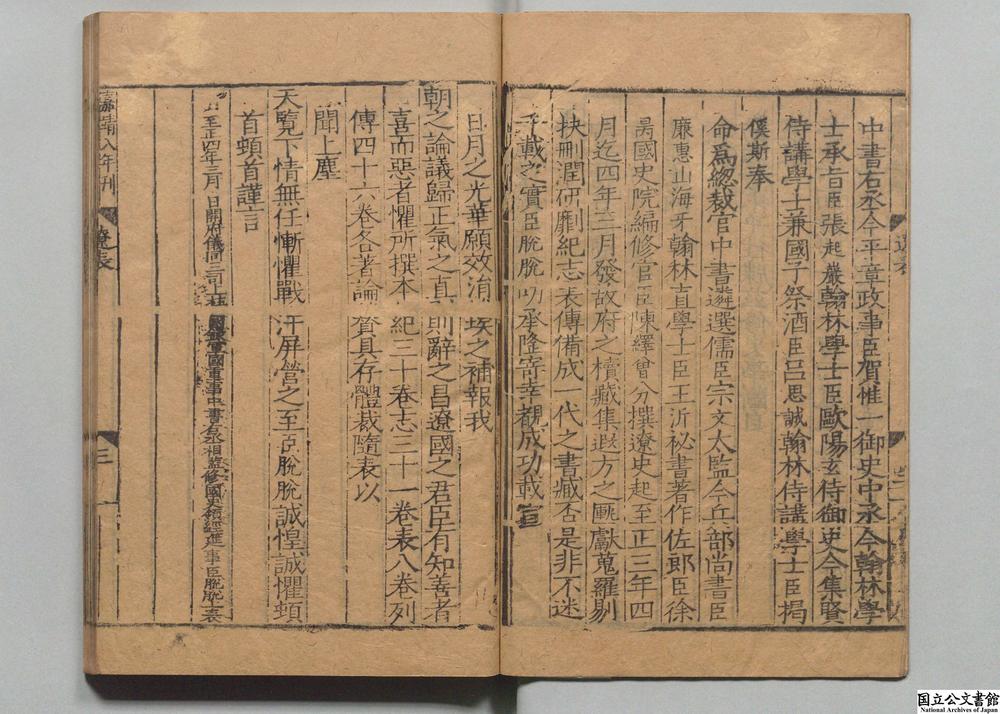 中書右丞今平章政事臣賀惟一御史中丞今翰林學
士承旨臣張起巖翰林學士臣歐陽玄侍御史今集賢
侍講學士兼國子祭酒臣呂思誠翰林侍講學士臣揭
傒斯奉
命爲總裁官中書遴選儒臣宗文太監今兵部尚書臣
廉惠山海牙翰林直學士臣王沂秘書著作佐郎臣徐
昺國史院編修官臣陳繹曾分撰遼史起至正三年四
月迄四年三月發故府之檟藏集遐方之匭獻蒐羅剔
抉刪潤研劘紀志表傳備成一代之書臧否是非不迷
千載之實臣脫脫叨承隆寄幸覩成功載宣
日月之光華願效涓埃之補報我
朝之論議歸正氣之直則辭之昌遼國之君臣有知善者
喜而惡者懼所撰本紀三十卷志三十一卷表八卷列
傳四十六卷各著論贊具存體裁隨表以
聞上塵
天覽下情無任慚懼戰汗屏營之至臣脫脫誠惶誠懼頓
首頓首謹言
至正四年三月日開府儀同三司上柱國錄軍國重事中書右丞相監修國史領經筵事臣脫脫上表
嘉靖八年刊
遼表
三
国立公文書館
National Archives of Japan